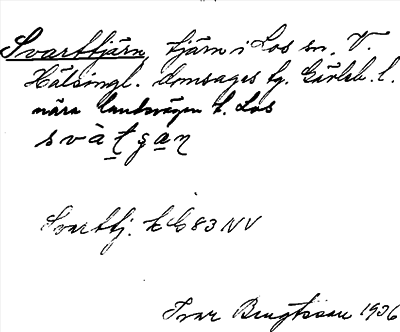 Svarttjärn, tjärn i Los sn, V.
Hälsingl. domsagas tg. Gävleb. l.
nära landsvägen t. Los
svàtṣan
Svarttj. k G 83 NV
Ivar Bengtsson 1936